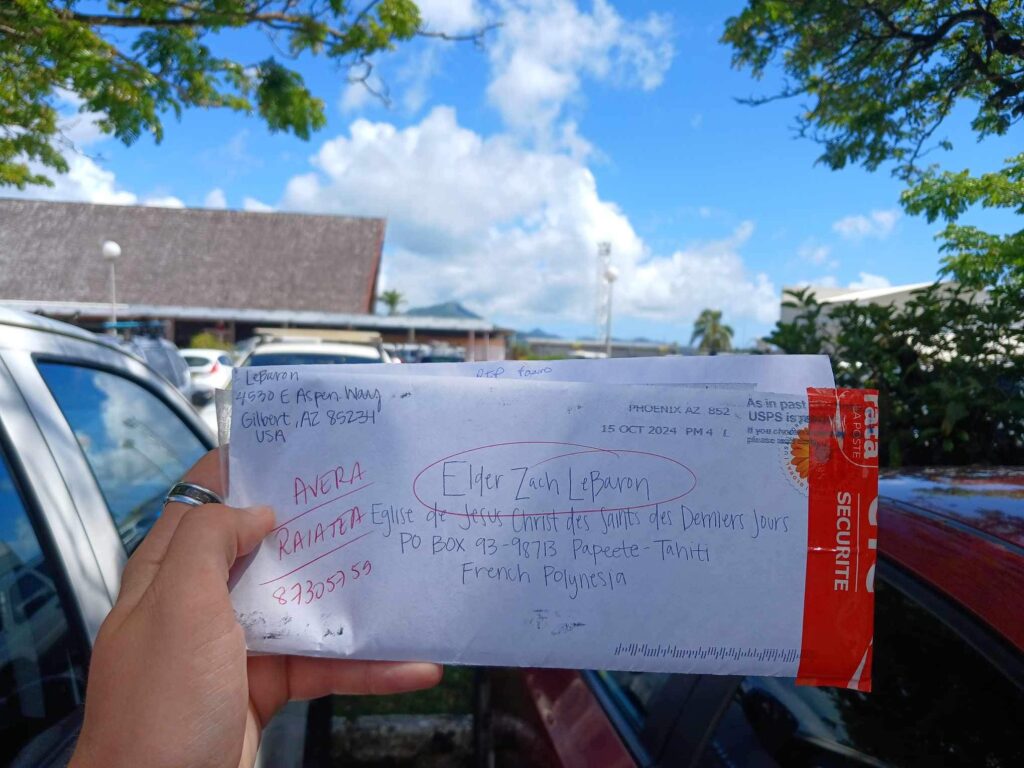 LeBaron
4530 E Aspen Way
Gilbert, AZ 85234
USA
PHOENIX AZ 852
15 OCT 2024 PM 4 L
As in past
USPS is
If you choose
please
AVERA
RAIATEA
87305755
Elder Zach LeBaron
Eglise de Jesus Christ des Saints des Derniers Jours
PO BOX 93-98713 Papeete-Tahiti
French Polynesia
LA POSTE
SECURITE